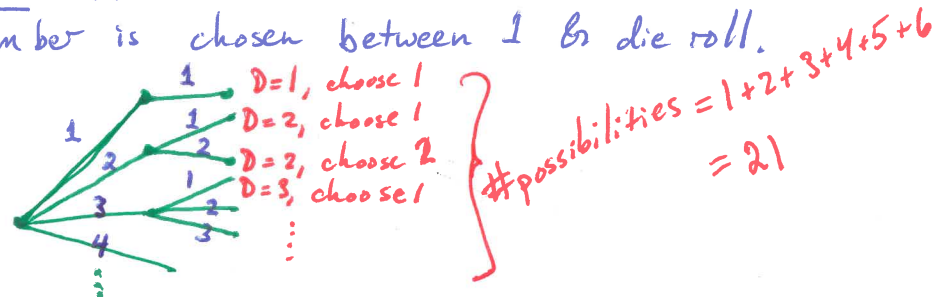 mber is chosen between 1 & die roll.
1 D=1, choose 1
1 1 D=2, choose 1
2 2 D=2, choose 2
1 D=3, choose 1
3 2
3
4
#possibilities = 1+2+3+4+5+6
= 21